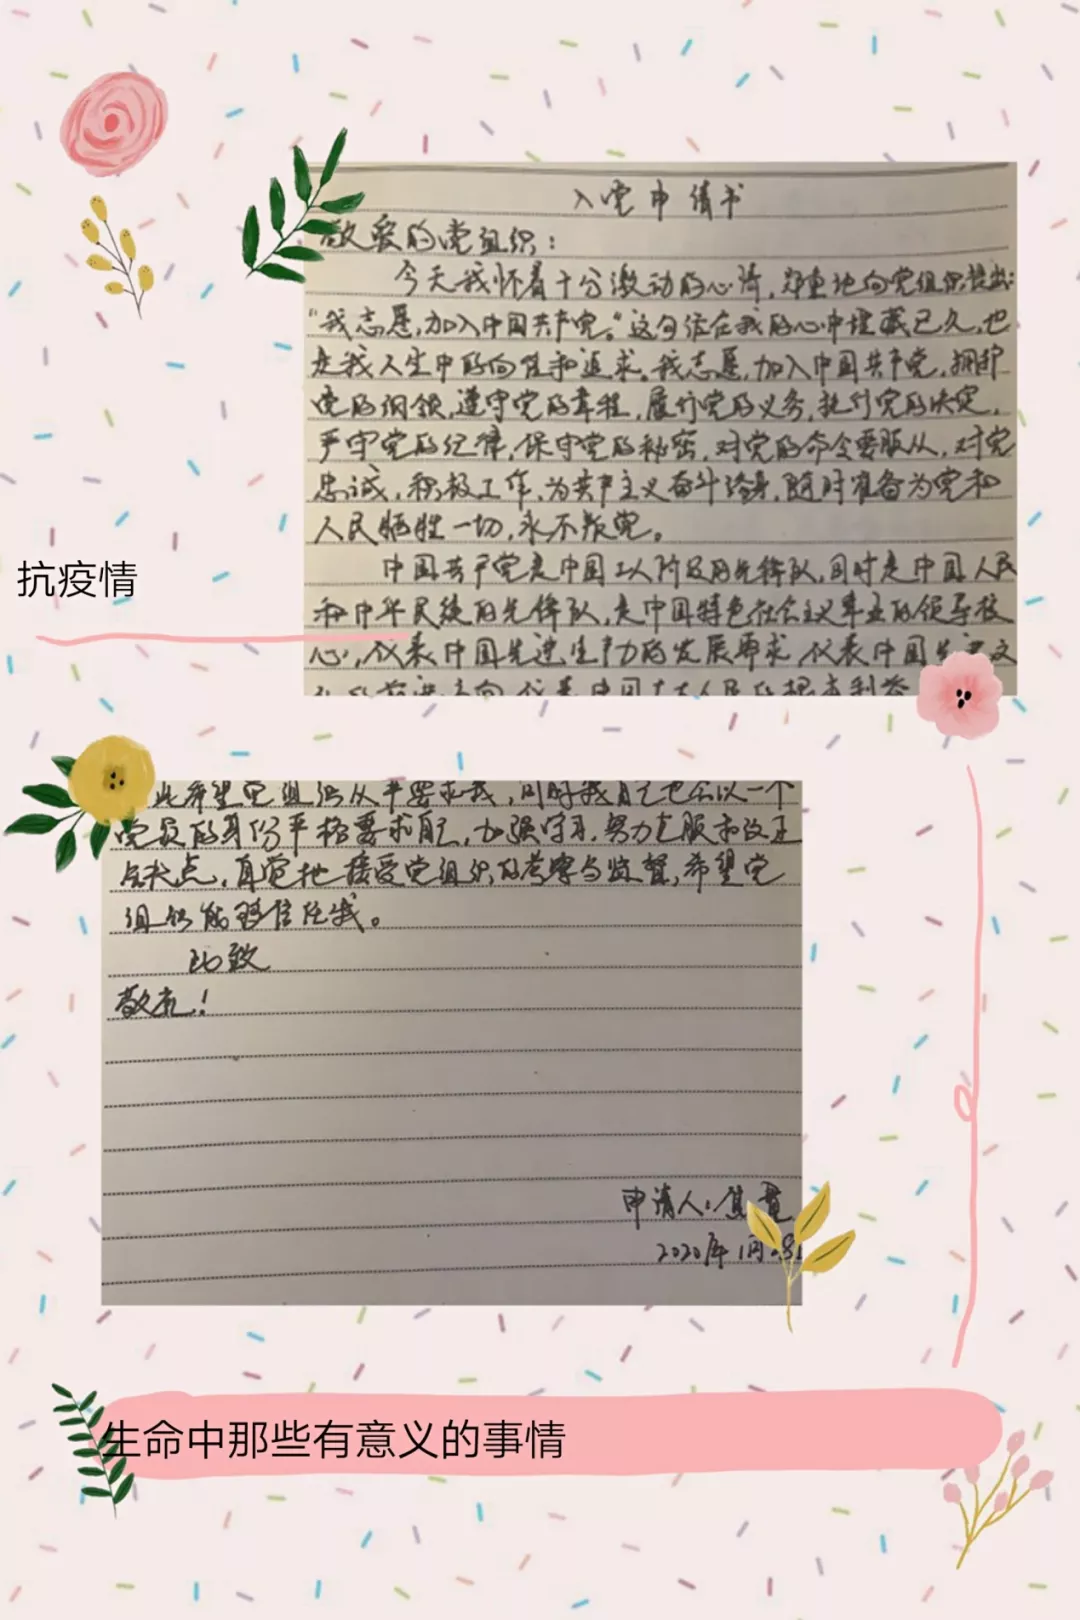 入党申请书
敬爱的党组织：
今天我怀着十分激动的心情，郑重地向党组织提出：
“我志愿加入中国共产党。”这句话在我的心中埋藏已久，也
是我人生中的向往和追求。我志愿加入中国共产党，拥护
党的纲领，遵守党的章程，履行党的义务，执行党的决定，
严守党的纪律，保守党的秘密，对党的命令要服从，对党
忠诚，积极工作，为共产主义奋斗终身，随时准备为党和
人民牺牲一切，永不叛党。
中国共产党是中国工人阶级的先锋队，同时是中国人民
和中华民族的先锋队，是中国特色社会主义事业的领导核
心，代表中国先进生产力的发展要求，代表中国先进文
抗疫情
此希望党组织从严要求我，同时我自己也会以一个
党员的身份严格要求自己，加强学习，努力克服和改正
缺点，自觉地接受党组织的考察与监督，希望党
组织能够信任我。
此致
敬礼！
申请人：焦
2020年1月28
生命中那些有意义的事情